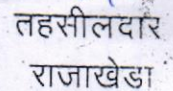 तहसीलदार
राजाखेडा